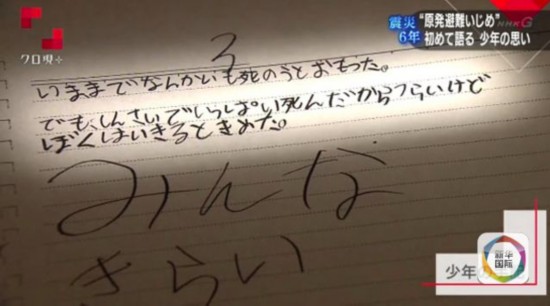 震災6年
"原発避難いじめ"
初めて語る 少年の思い
NHK G
クロ現+
3
いままでなんかいも死のうとおもった。
でも、しんさいでいっぱい死んだからつらいけど
ぼくはいきるときめた。
みんな
きらい
少年の
新华
国际